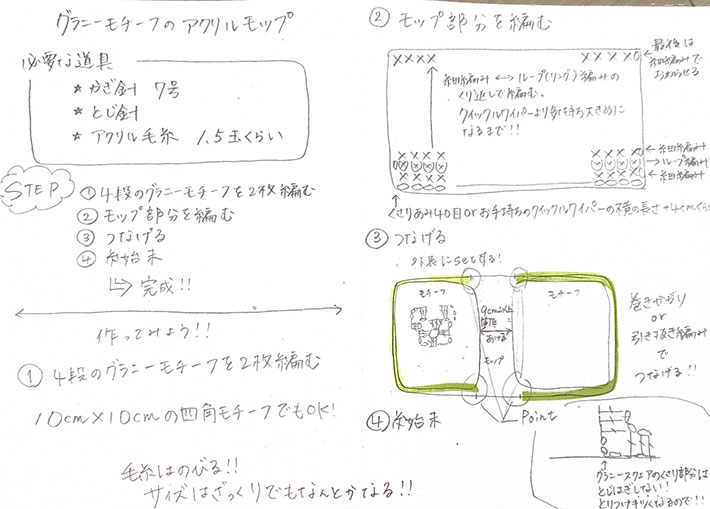 グラニーモチーフのアクリルモップ
必要な道具
★ かぎ針 7号
★ とじ針
★ アクリル毛糸 1.5玉くらい
STEP
① 4段のグラニーモチーフを2枚編む
② モップ部分を編む
③ つなげる
④ 糸始末
完成!!
作ってみよう!!
① 4段のグラニーモチーフを2枚編む
10cm×10cmの四角モチーフでもOK!
毛糸はのびる!!
サイズはざっくりでもなんとかなる!!
② モップ部分を編む
最後は
細編みで
おわらせる
××××
××××0
細編み ↔ ループ(リング)編みの
くり返しで編む。
クイックルワイパーより気持ち大きめに
なるまで!!
←細編み
→ループ編み
←細編み
くさりあみ40目orお手持ちのクイックルワイパーの横の長さ+4cmくらい
③ つなげる
外表にsetする!
モチーフ
モチーフ
9cm以上
あける
モップ
巻きかがり
or
引き抜き編み
で
つなげる!!
Point
④ 糸始末
グラニースクエアのくさり部分は
とじはぎしない!
とりつけキツくなるので!!